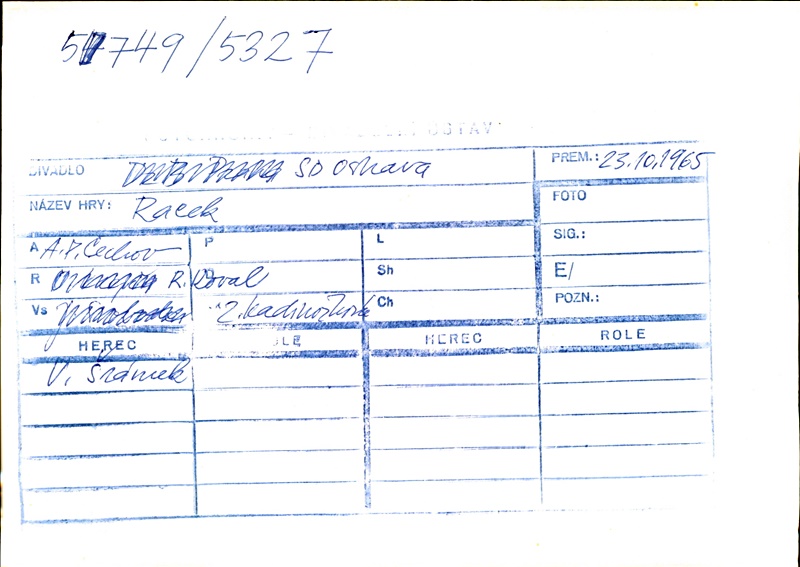 57749/5327
DIVADLO SD Ostrava PREM.: 23.10.1965
NÁZEV HRY: Racek FOTO
A A.P. Čechov P L SIG.:
R R. Koval Sh E/
Vs Z. Kadrnožková Ch POZN.:
HEREC ROLE HEREC ROLE
V. Šrámek